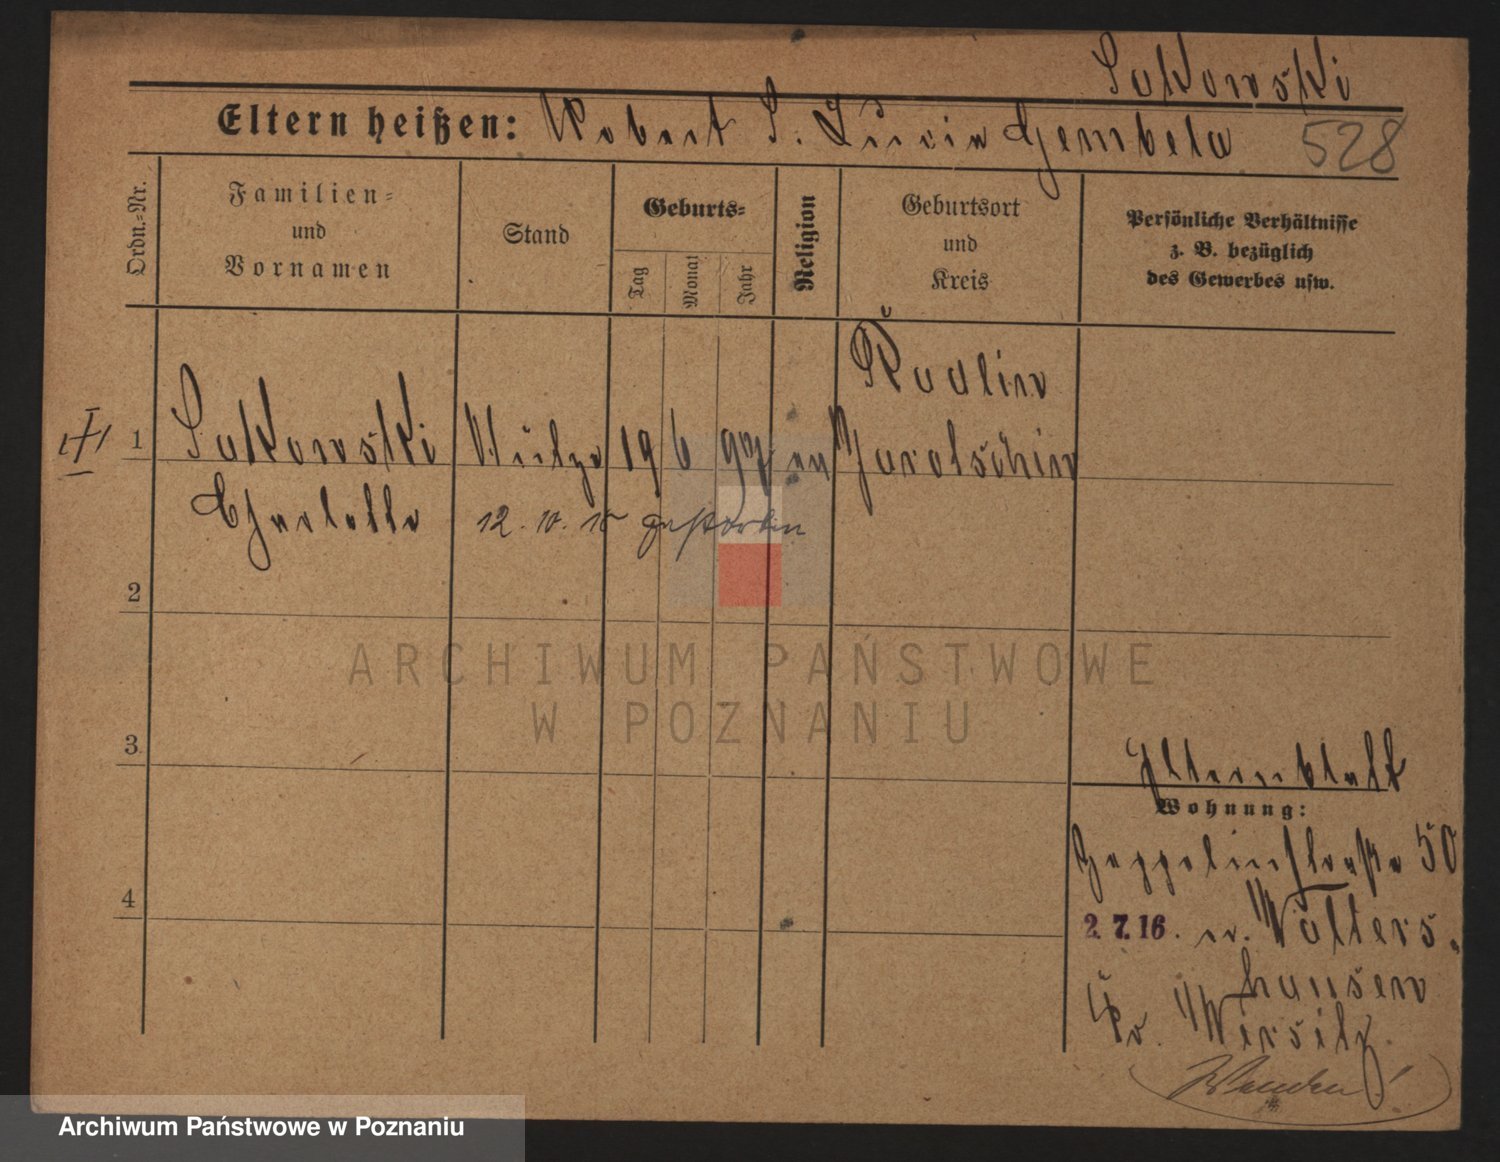 Sukowski
Eltern heißen: Robert S. Lucie Gembela 528
Ordn.=Nr.
Familien=
und
Vornamen
Stand
Geburts=
Tag
Monat
Jahr
Religion
Geburtsort
und
Kreis
Persönliche Verhältnisse
z. B. bezüglich
des Gewerbes usw.
1 Sukowski Stütze 19 6 97 ev
Radlin
Jarotschin
Charlotte 12. 10. 15 gestorben
2
3
4
Elternblatt
Wohnung:
Zeppelinstraße 50
2. 7. 16. n. Wolters-
hausen
Kr. Wirsitz
ARCHIWUM PAŃSTWOWE
W POZNANIU
Archiwum Państwowe w Poznaniu